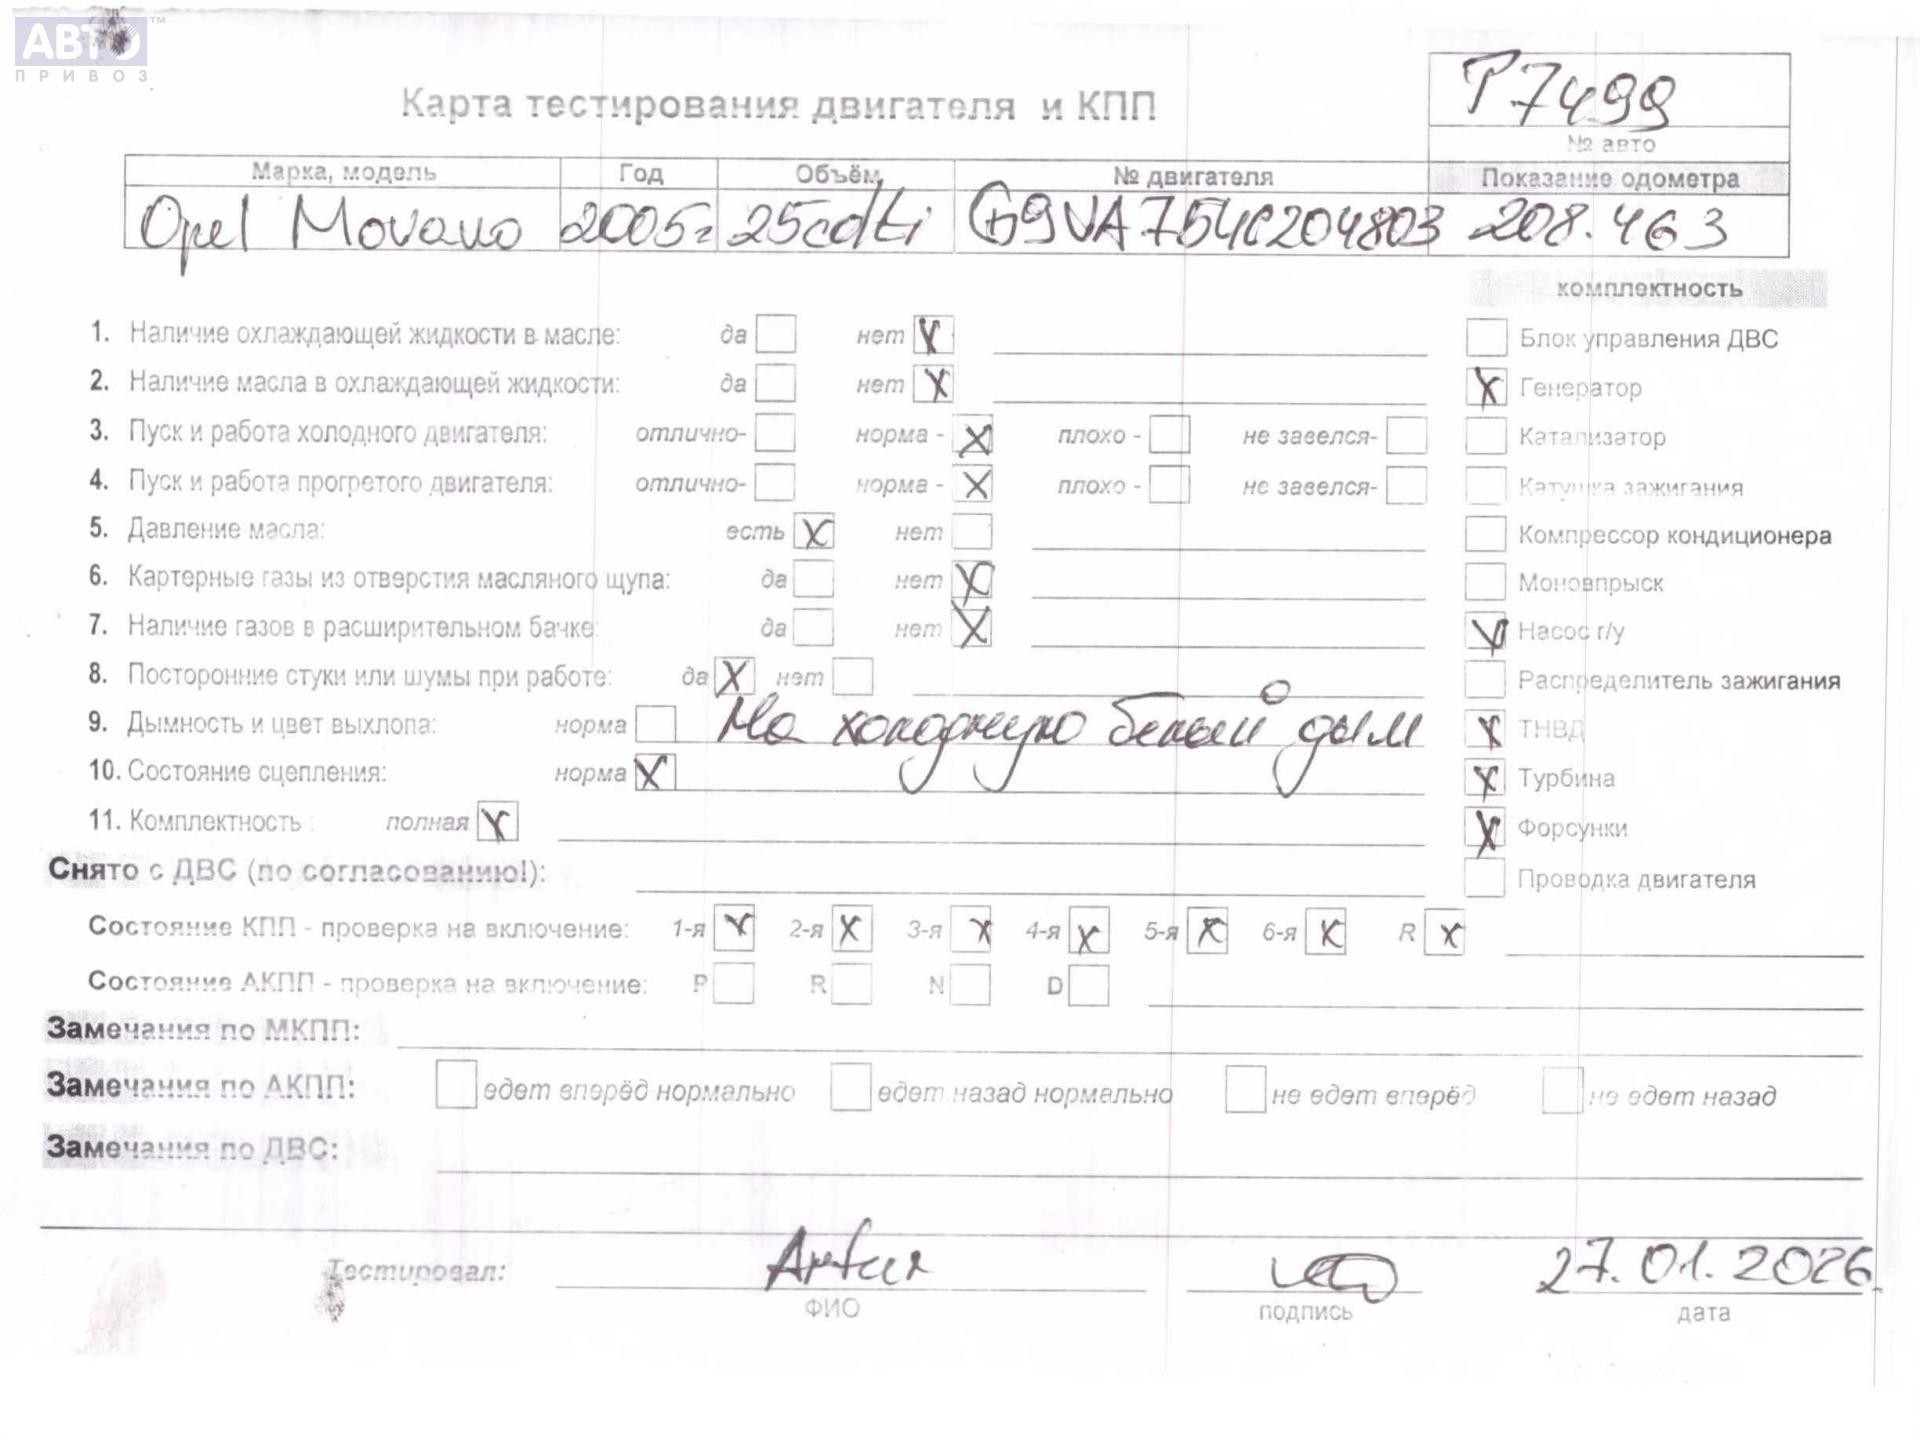 АВТО™
ПРИВОЗ
Карта тестирования двигателя и КПП
P7499
№ авто
Марка, модель Год Объём № двигателя Показание одометра
Opel Movano 2005г 25cdti G9UA754C204803 208.463
комплектность
1. Наличие охлаждающей жидкости в масле: да нет X Блок управления ДВС
2. Наличие масла в охлаждающей жидкости: да нет X X Генератор
3. Пуск и работа холодного двигателя: отлично- норма - X плохо - не завелся- Катализатор
4. Пуск и работа прогретого двигателя: отлично- норма - X плохо - не завелся- Катушка зажигания
5. Давление масла: есть X нет Компрессор кондиционера
6. Картерные газы из отверстия масляного щупа: да нет X Моновпрыск
7. Наличие газов в расширительном бачке: да нет X X Насос г/у
8. Посторонние стуки или шумы при работе: да X нет Распределитель зажигания
9. Дымность и цвет выхлопа: норма На холодную белый дым X ТНВД
10. Состояние сцепления: норма X X Турбина
11. Комплектность : полная X X Форсунки
Снято с ДВС (по согласованию!): Проводка двигателя
Состояние КПП - проверка на включение: 1-я X 2-я X 3-я X 4-я X 5-я X 6-я X R X
Состояние АКПП - проверка на включение: P R N D
Замечания по МКПП:
Замечания по АКПП: едет вперёд нормально едет назад нормально не едет вперёд не едет назад
Замечания по ДВС:
Тестировал: Artur 27.01.2026
ФИО подпись дата